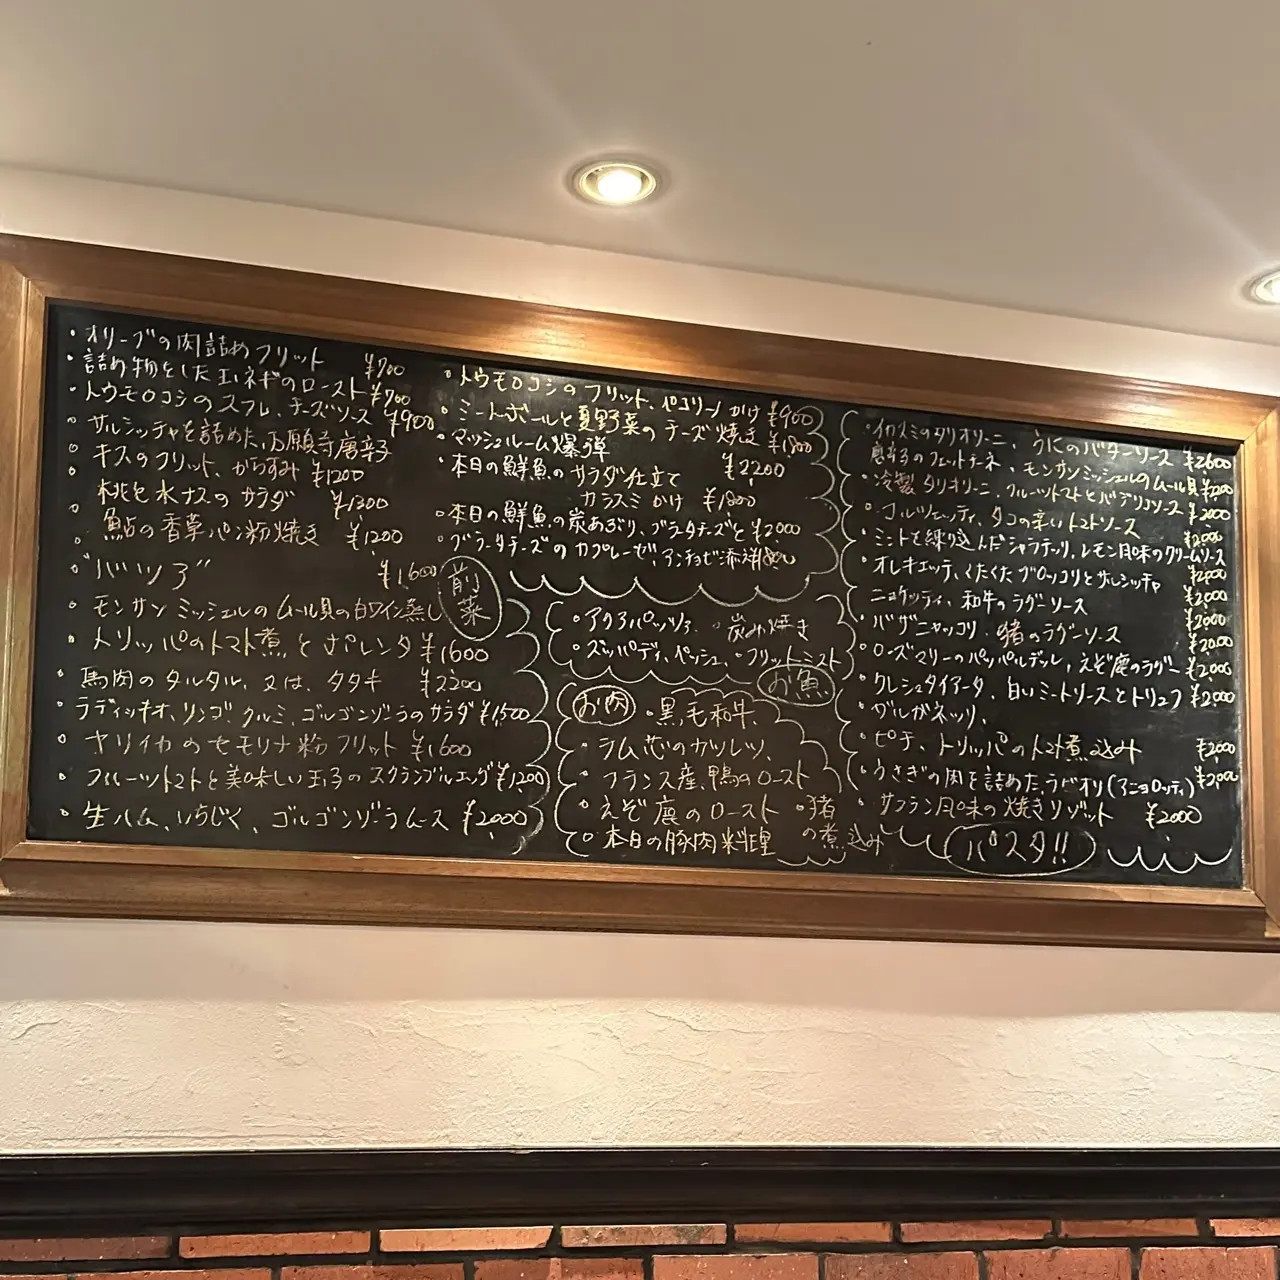 ・オリーブの肉詰めフリット ¥700
・詰め物をした玉ネギのロースト ¥700
・トウモロコシのスフレ、チーズソース ¥900
・サルシッチャを詰めた、万願寺唐辛子
・キスのフリット、からすみ ¥1200
・桃と水ナスのサラダ ¥1300
・鮎の香草パン粉焼き ¥1200
・"バーツア" ¥1600
・モンサンミッシェルのムール貝の白ワイン蒸し
・トリッパのトマト煮とポレンタ ¥1600
・馬肉のタルタル、又は、タタキ ¥2200
・ラディッキオ、リンゴ、クルミ、ゴルゴンゾーラのサラダ ¥1500
・ヤリイカのセモリナ粉フリット ¥1600
・フルーツトマトと美味しい玉子のスクランブルエッグ ¥1200
・生ハム、いちじく、ゴルゴンゾーラムース ¥2000
前菜
・トウモロコシのフリット、ペコリーノかけ ¥900
・ミートボールと夏野菜のチーズ焼き ¥1800
・マッシュルーム爆弾
・本日の鮮魚のサラダ仕立て ¥2200
カラスミかけ ¥1800
・本日の鮮魚の炭あぶり、ブラータチーズと ¥2000
・ブラータチーズのカプレーゼ、アンチョビ添え
・アクアパッツァ ・炭火焼き
・ズッパディペッシェ、・フリットミスト
お魚
お肉
・黒毛和牛、
・ラム芯のカツレツ、
・フランス産、鴨のロースト
・えぞ鹿のロースト ・猪
の煮込み
・本日の豚肉料理
・イカスミのタリオリーニ、うにのバターソース ¥2600
のフェットチーネ、モンサンミッシェルのムール貝
・冷製タリオリーニ、フルーツトマトとバジリコソース ¥2000
タコの辛いトマトソース ¥2000
・ミントを練り込んだシャラテッリ、レモン風味のクリームソース
・オレキエッテ、くたくたブロッコリとサルシッチャ ¥2000
ニョケッティ、和牛のラグーソース ¥2000
猪のラグーソース ¥2000
・ローズマリーのパッパルデッレ、えぞ鹿のラグー ¥2000
・クレシュタイアータ、白いミートソースとトリュフ ¥2000
・ガルガネッリ、
・ピチ、トリッパのトマト煮込み ¥2000
・うさぎの肉を詰めた、ラビオリ(アニョロッティ) ¥2200
・サフラン風味の焼きリゾット ¥2000
パスタ!!